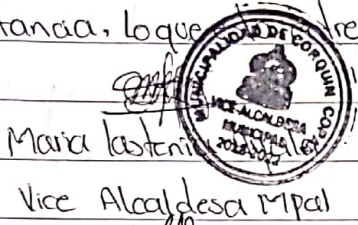 tancia, lo que
MUNICIPALIDAD DE CORQUIN COPAN
VICE-ALCALDESA
MUNICIPAL
Maria lastenia
Vice Alcaldesa Mpal